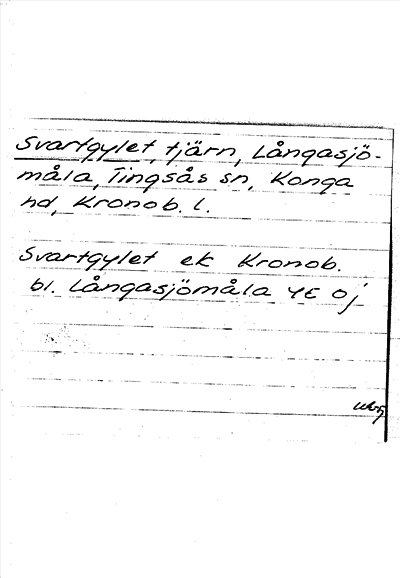 Svartgylet, tjärn, Långasjö-
måla, Tingsås sn, Konga
hd, Kronob. l.
Svartgylet ek Kronob.
bl. Långasjömåla 4E Oj